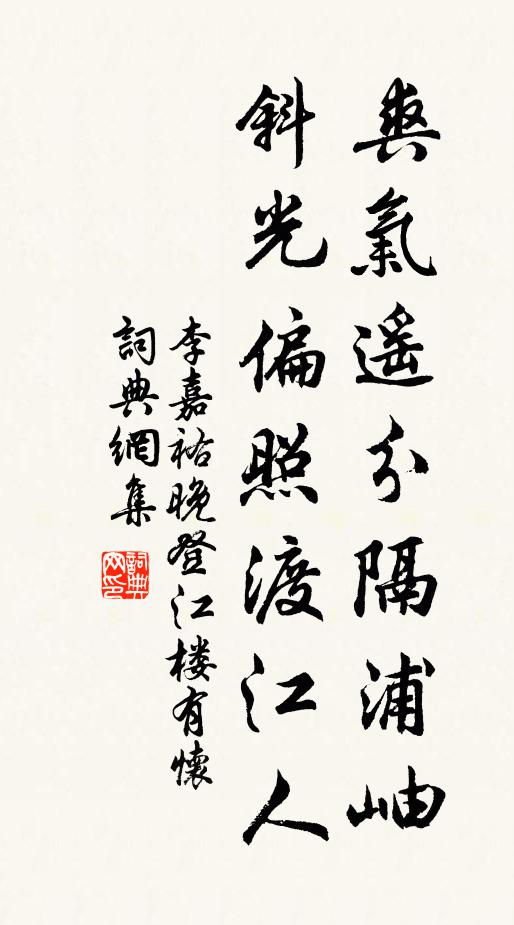 爽氣遥分隔浦岫
斜光偏照渡江人
李嘉祐晚登江楼有懷
詞典網集
詞典网印